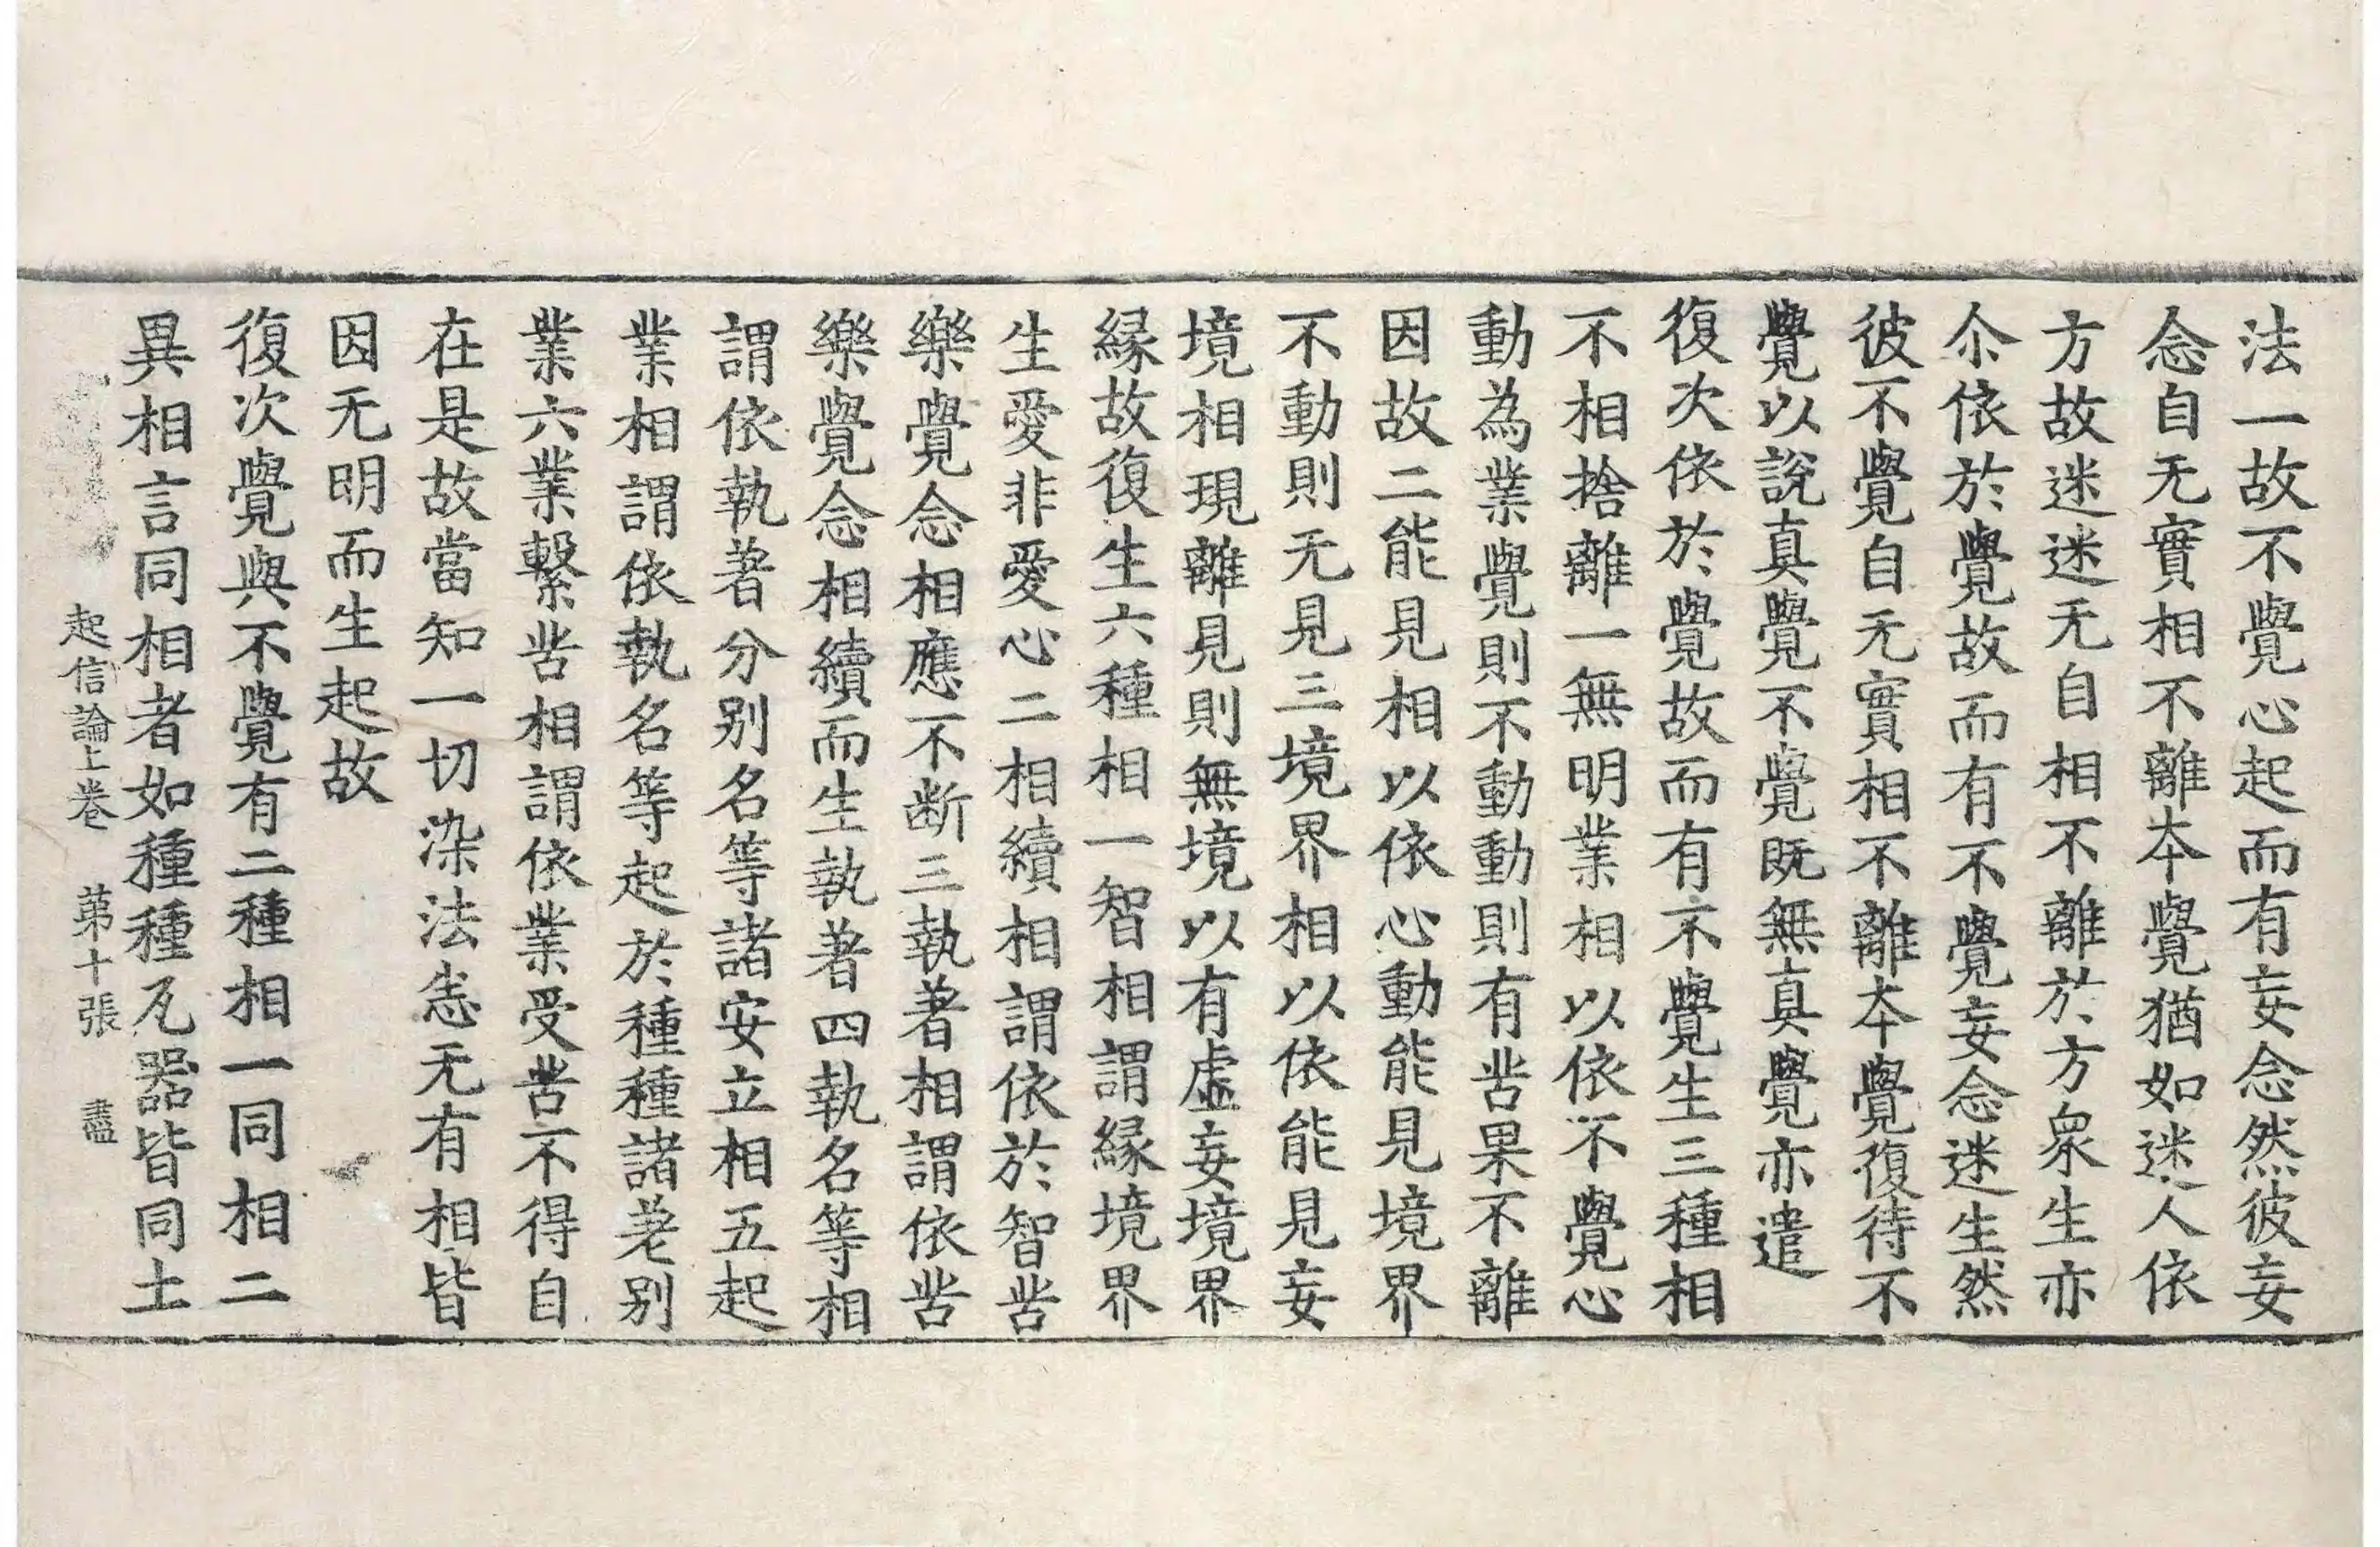 法一故不覺心起而有妄念然彼妄
念自无實相不離本覺猶如迷人依
方故迷迷无自相不離於方衆生亦
尒依於覺故而有不覺妄念迷生然
彼不覺自无實相不離本覺復待不
覺以說真覺不覺既無真覺亦遣
復次依於覺故而有不覺生三種相
不相捨離一無明業相以依不覺心
動為業覺則不動動則有苦果不離
因故二能見相以依心動能見境界
不動則无見三境界相以依能見妄
境相現離見則無境以有虛妄境界
緣故復生六種相一智相謂緣境界
生愛非愛心二相續相謂依於智苦
樂覺念相應不断三執著相謂依苦
樂覺念相續而生執著四執名等相
謂依執著分別名等諸安立相五起
業相謂依執名等起於種種諸差別
業六業繫苦相謂依業受苦不得自
在是故當知一切染法悉无有相皆
因无明而生起故
復次覺與不覺有二種相一同相二
異相言同相者如種種瓦器皆同土
起信論上卷　苐十張　盡